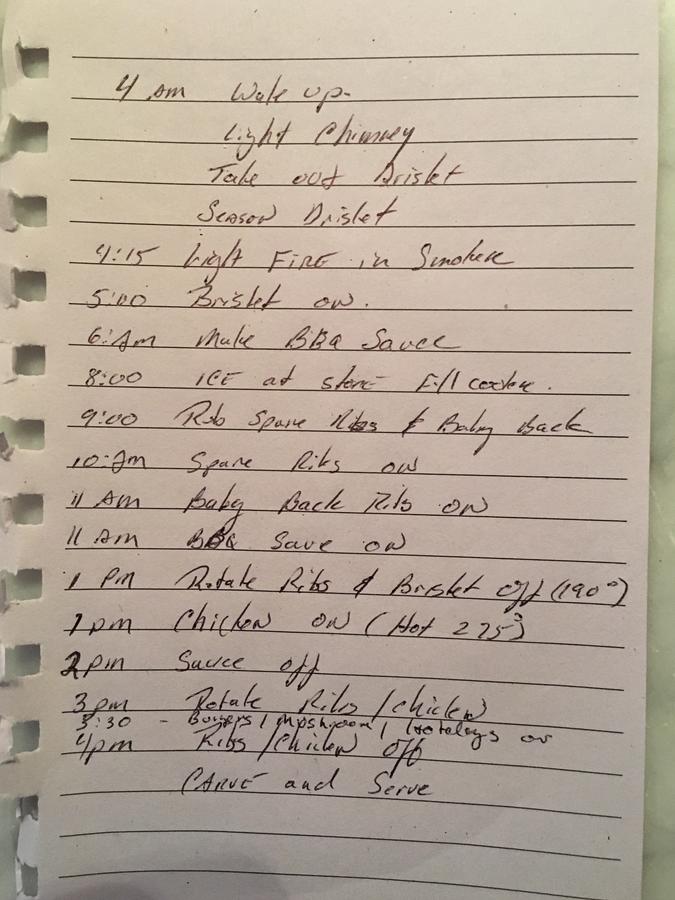 4 am Wake up-
Light Chimney
Take out Brisket
Season Brisket
4:15 Light FIRE in Smoker
5:00 Brisket on.
6:Am Make BBQ Sauce
8:00 ICE at store Fill cooler.
9:00 Rub Spare Ribs & Baby Back
10:Am Spare Ribs on
11 AM Baby Back Ribs ON
11 AM BBQ Sauce on
1 PM Rotate Ribs & Brisket off (190°)
1 pm Chicken ON (Hot 275°)
2 pm Sauce off
3 pm Rotate Ribs / Chicken
3:30 - Burgers / mushroom / Hotdogs on
4pm Ribs / Chicken off
CARVE and Serve